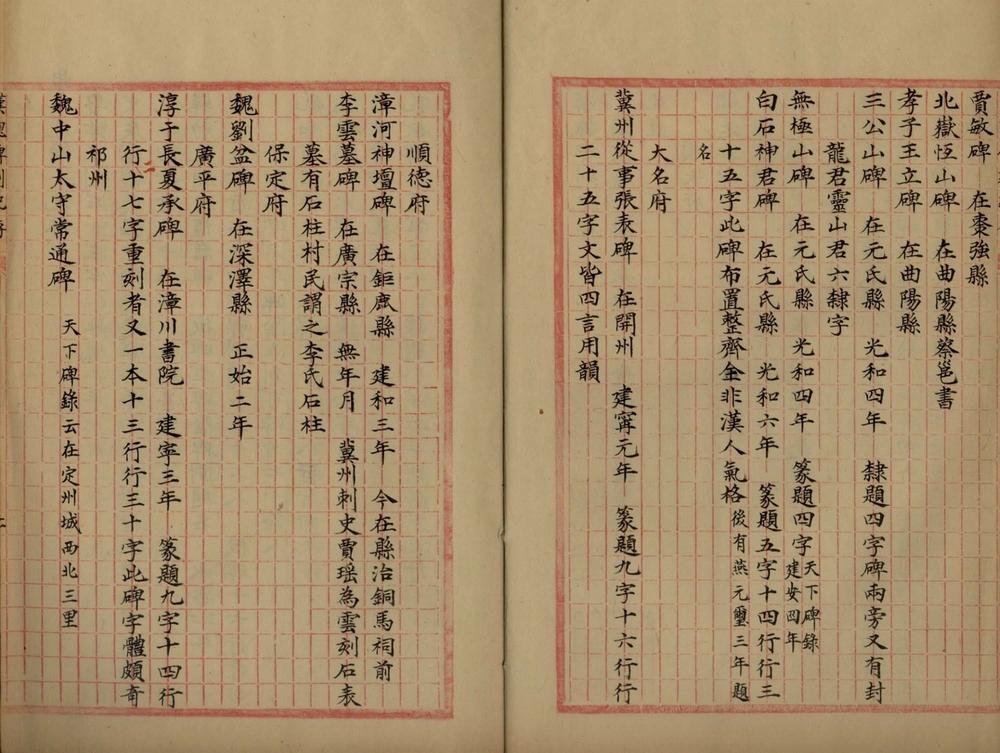 賈敏碑　在棗強縣
北嶽恆山碑　在曲陽縣蔡邕書
孝子王立碑　在曲陽縣
三公山碑　在元氏縣　光和四年　隸題四字碑兩旁又有封
龍君靈山君六隸字
無極山碑　在元氏縣　光和四年　篆題四字天下碑錄建安四年
白石神君碑　在元氏縣　光和六年　篆題五字十四行行三
十五字此碑布置整齊全非漢人氣格後有燕元璽三年題
名
大名府
冀州從事張表碑　在開州　建甯元年　篆題九字十六行行
二十五字文皆四言用韻
順德府
漳河神壇碑　在鉅鹿縣　建和三年　今在縣治銅馬祠前
李雲墓碑　在廣宗縣　無年月　冀州刺史賈瑤為雲刻石表
墓有石柱村民謂之李氏石柱
保定府
魏劉盆碑　在深澤縣　正始二年
廣平府
淳于長夏承碑　在漳川書院　建寧三年　篆題九字十四行
行十七字重刻者又一本十三行行三十字此碑字體頗奇
祁州
魏中山太守常通碑　天下碑錄云在定州城西北三里